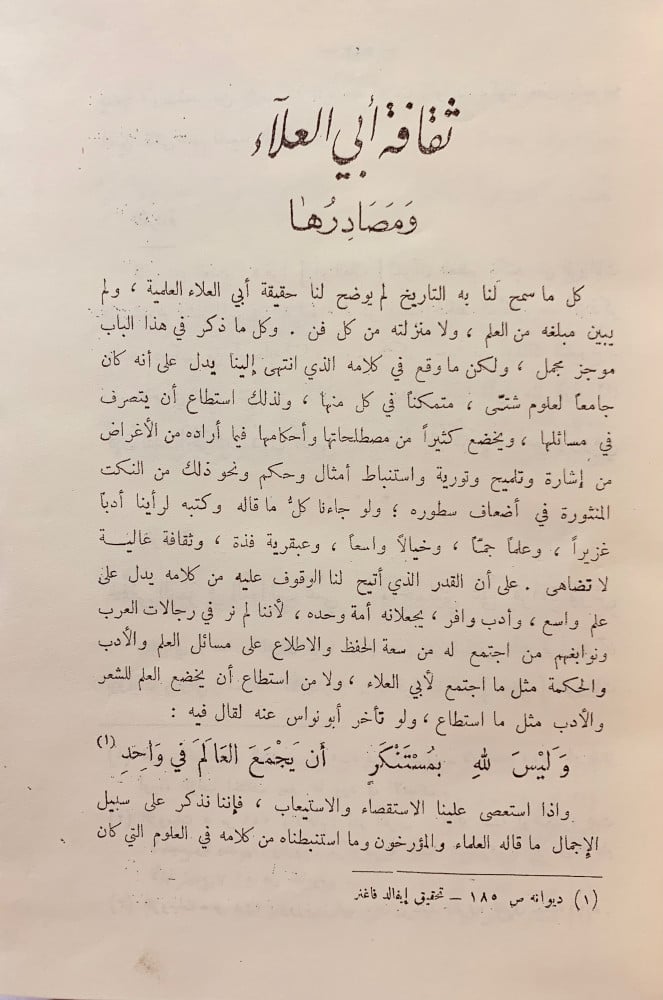 ثقافة أبي العلآء
وَمَصَادِرُها
كل ما سمح لنا به التاريخ لم يوضح لنا حقيقة أبي العلاء العلمية ، ولم
يبين مبلغه من العلم ، ولا منزلته من كل فن . وكل ما ذكر في هذا الباب
موجز مجمل ، ولكن ما وقع في كلامه الذي انتهى إلينا يدل على أنه كان
جامعاً لعلوم شتّى ، متمكناً في كل منها ، ولذلك استطاع أن يتصرف
في مسائلها ، ويخضع كثيراً من مصطلحاتها وأحكامها فيما أراده من الأغراض
من إشارة وتلميح وتورية واستنباط أمثال وحكم ونحو ذلك من النكت
المنثورة في أضعاف سطوره ؛ ولو جاءنا كلُّ ما قاله وكتبه لرأينا أدباً
غزيراً ، وعلماً جمّاً ، وخيالاً واسعاً ، وعبقرية فذة ، وثقافة عالية
لا تضاهى . على أن القدر الذي أتيح لنا الوقوف عليه من كلامه يدل على
علم واسع ، وأدب وافر ، يجعلانه أمة وحده ، لأننا لم نر في رجالات العرب
ونوابغهم من اجتمع له من سعة الحفظ والاطلاع على مسائل العلم والأدب
والحكمة مثل ما اجتمع لأبي العلاء ، ولا من استطاع أن يخضع العلم للشعر
والأدب مثل ما استطاع ، ولو تأخر أبو نواس عنه لقال فيه :
وَلَيْسَ للهِ بمُسْتَنْكَرٍ أن يَجْمَعَ العَالَمَ في وَاحِدِ (١)
واذا استعصى علينا الاستقصاء والاستيعاب ، فإننا نذكر على سبيل
الإجمال ما قاله العلماء والمؤرخون وما استنبطناه من كلامه في العلوم التي كان
(١) ديوانه ص ١٨٥ – تحقيق إيفالد فاغنر